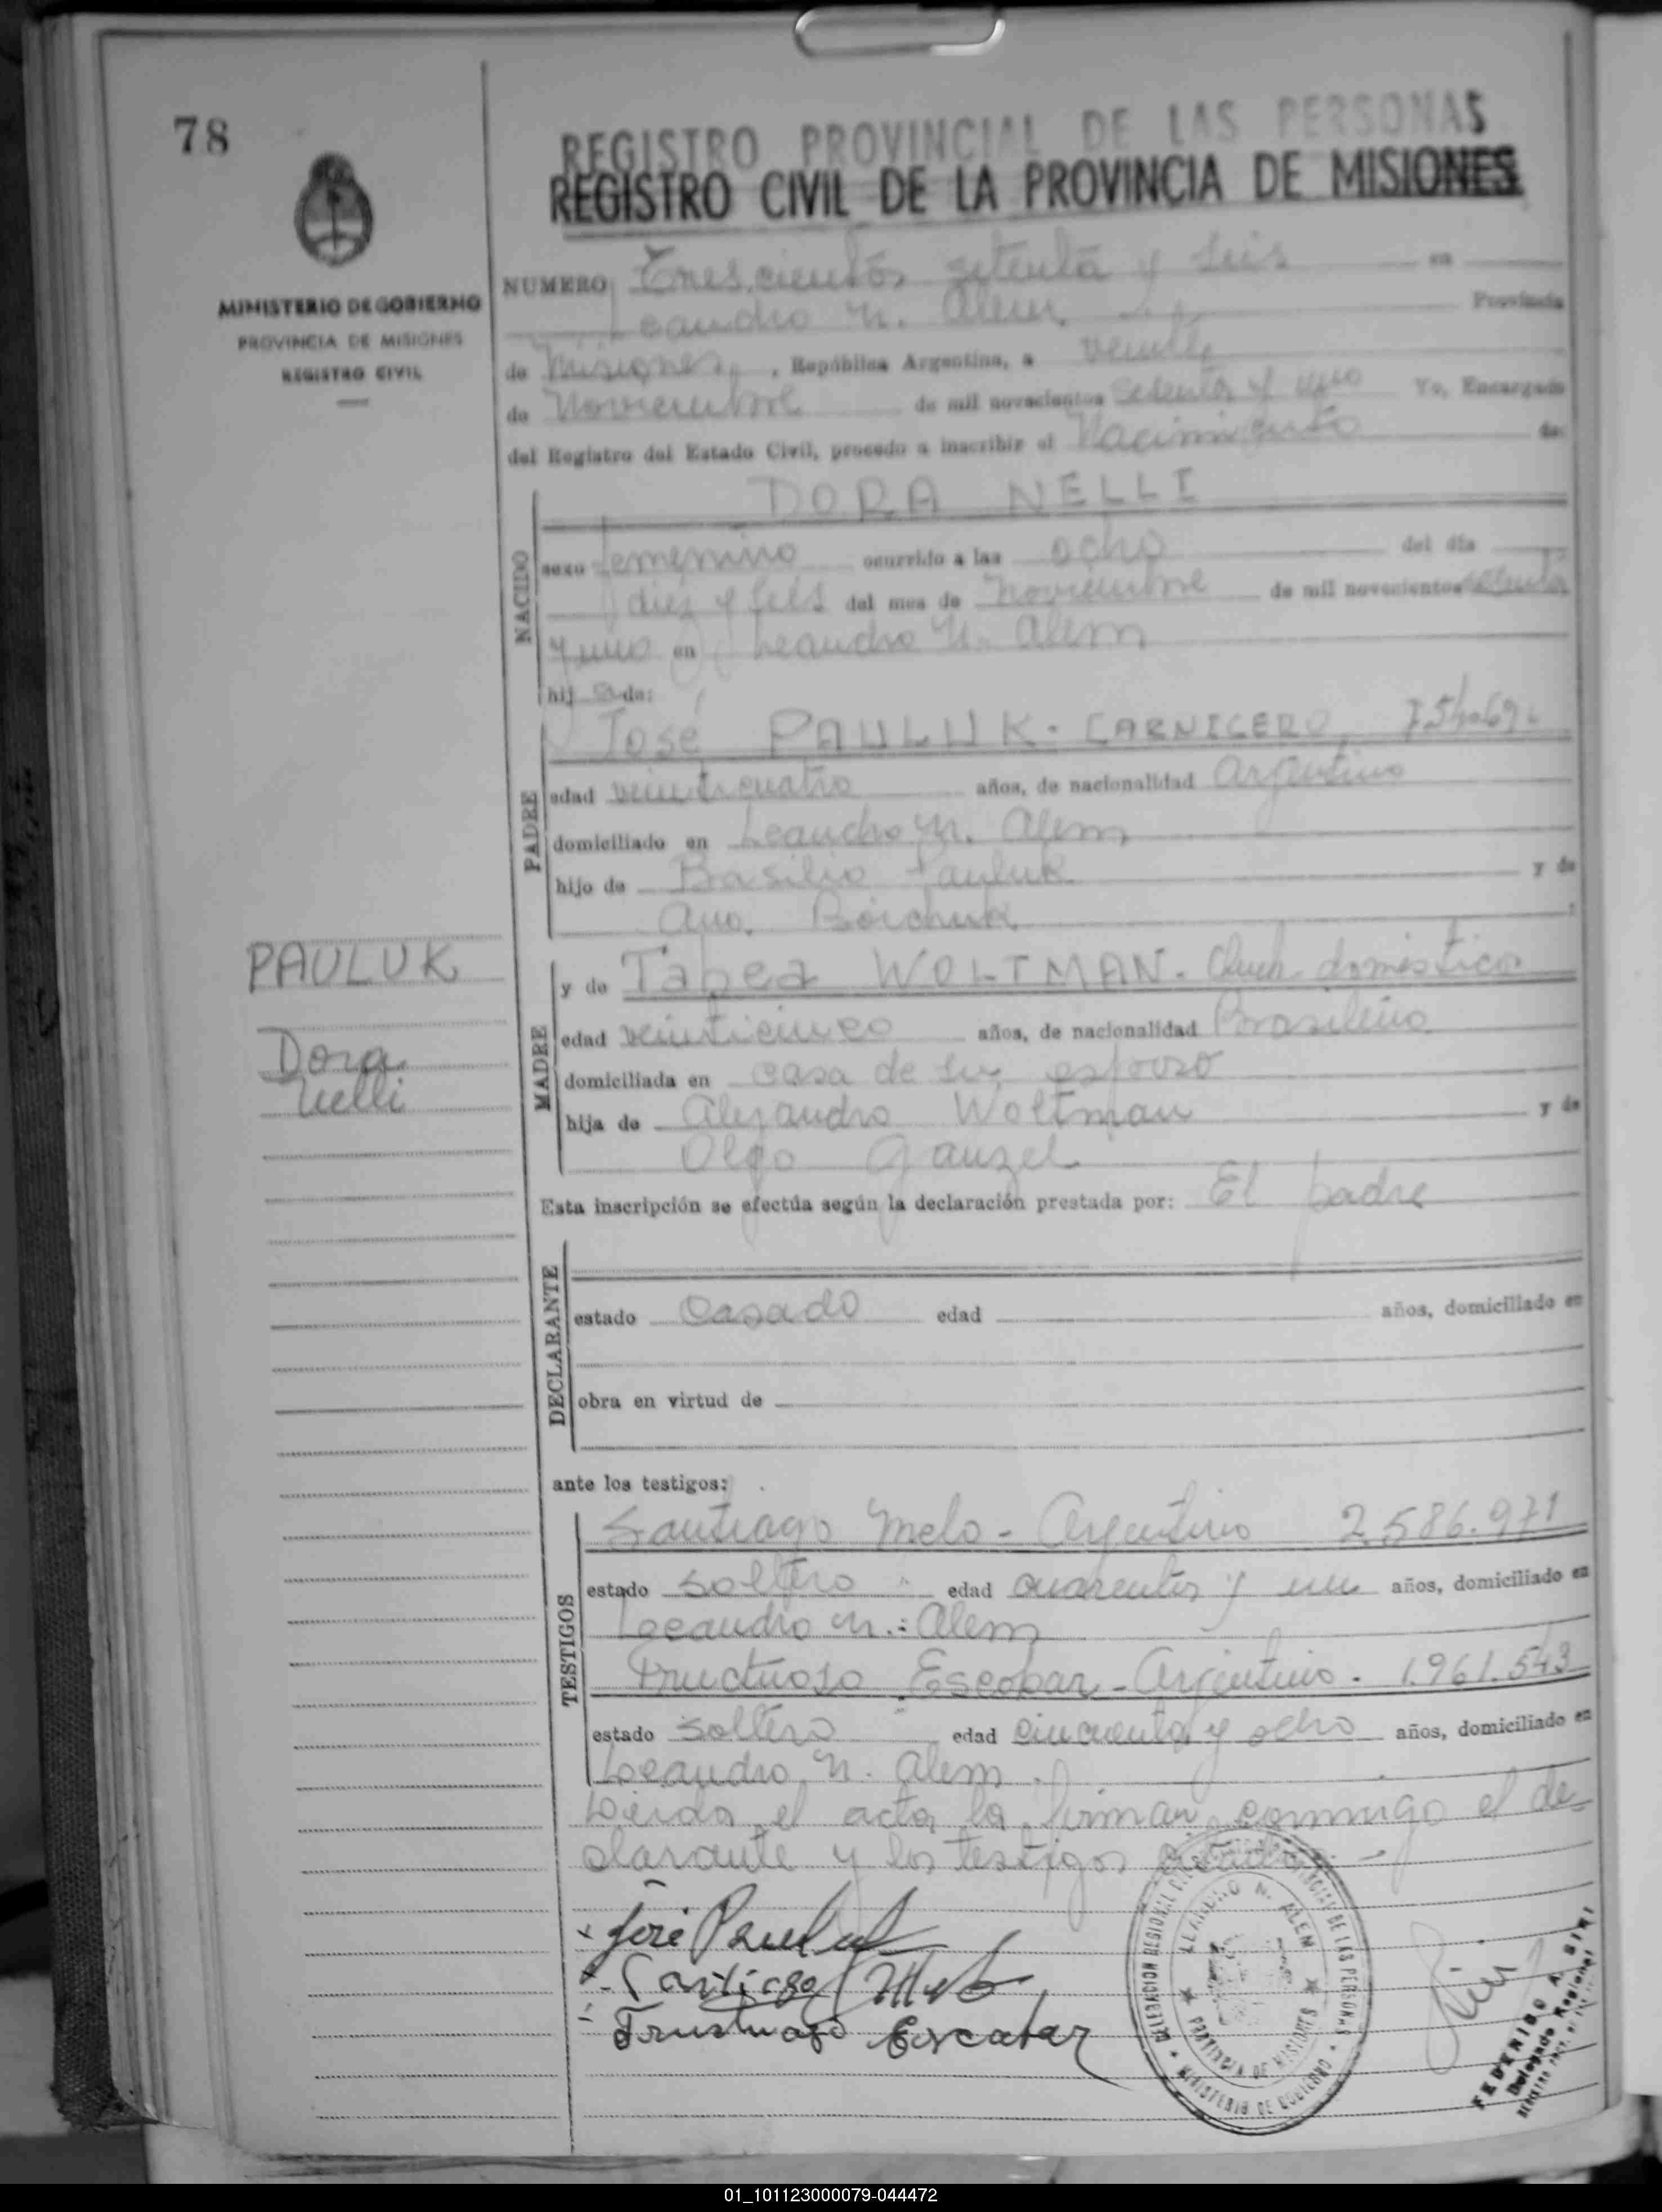 78
REGISTRO PROVINCIAL DE LAS PERSONAS
REGISTRO CIVIL DE LA PROVINCIA DE MISIONES
MINISTERIO DE GOBIERNO
PROVINCIA DE MISIONES
REGISTRO CIVIL
NUMERO Trescientos setenta y seis en
Leandro N. Alem Provincia
de Misiones, República Argentina, a veinte
de Noviembre de mil novecientos setenta y uno Yo, Encargado
del Registro del Estado Civil, procedo a inscribir el Nacimiento de:
NACIDO
DORA NELLI
sexo femenino ocurrido a las ocho del día
diez y seis del mes de Noviembre de mil novecientos setenta
y uno en Leandro N. Alem
hija de:
PADRE
José PAULUK - CARNICERO,
edad veinticuatro años, de nacionalidad Argentino
domiciliado en Leandro N. Alem
hijo de Basilio Pauluk y de
Ana Boichuk
PAULUK
Dora
Nelli
MADRE
y de Tabea WOLTMAN - Queh. domésticos
edad veinticinco años, de nacionalidad Brasileña
domiciliada en casa de su esposo
hija de Alejandro Woltman y de
Olga Gauzel
Esta inscripción se efectúa según la declaración prestada por: El padre
DECLARANTE
estado casado edad años, domiciliado en
obra en virtud de
ante los testigos:
TESTIGOS
Santiago Melo - Argentino 2.586.971
estado soltero edad cuarenta y un años, domiciliado en
Leandro N. Alem
Fructuoso Escobar - Argentino - 1.961.543
estado soltero edad cincuenta y ocho años, domiciliado en
Leandro N. Alem
Leida el acta la firman conmigo el de-
clarante y los testigos citados -
José Pauluk
Santiago Melo
Fructuoso Escobar
DELEGACION REGIONAL
LEANDRO N. ALEM
PROVINCIA DE MISIONES
MINISTERIO DE GOBIERNO
FEDERICO A. SIRI
Delegado Regional
01_101123000079-044472